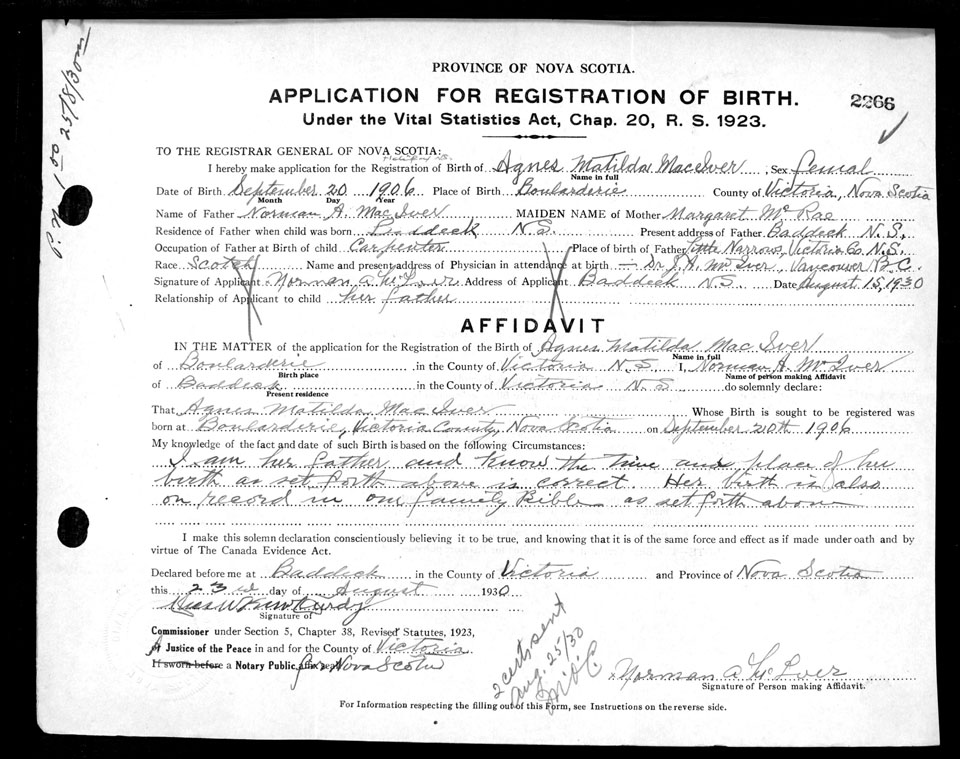 P.N. 1 00 25/8/30
PROVINCE OF NOVA SCOTIA.
APPLICATION FOR REGISTRATION OF BIRTH.
2266
Under the Vital Statistics Act, Chap. 20, R. S. 1923.
TO THE REGISTRAR GENERAL OF NOVA SCOTIA:
Halifax, N.S.
I hereby make application for the Registration of Birth of Agnes Matilda MacIver, Sex femal
Name in full
Date of Birth September 20 1906 Place of Birth Boularderie County of Victoria, Nova Scotia
Month Day Year
Name of Father Norman A. MacIver MAIDEN NAME of Mother Margaret McRae
Residence of Father when child was born Baddeck N.S. Present address of Father Baddeck N.S.
Occupation of Father at Birth of child Carpenter Place of birth of Father Little Narrows, Victoria Co. N.S.
Race Scotch Name and present address of Physician in attendance at birth — Dr. J. A. McIver, Vancouver B.C.
Signature of Applicant Norman A McIver Address of Applicant Baddeck N.S. Date August 15, 1930
Relationship of Applicant to child her father
AFFIDAVIT
IN THE MATTER of the application for the Registration of the Birth of Agnes Matilda MacIver
Name in full
of Boularderie in the County of Victoria N.S. I, Norman A. McIver
Birth place Name of person making Affidavit
of Baddeck in the County of Victoria N.S do solemnly declare:
Present residence
That Agnes Matilda MacIver Whose Birth is sought to be registered was
born at Boularderie, Victoria County, Nova Scotia on September 20th 1906
My knowledge of the fact and date of such Birth is based on the following Circumstances:
I am her father and know the time and place of her
birth as set forth above is correct. Her birth is also
on record in our family Bible as set forth above
I make this solemn declaration conscientiously believing it to be true, and knowing that it is of the same force and effect as if made under oath and by
virtue of The Canada Evidence Act.
Declared before me at Baddeck in the County of Victoria and Province of Nova Scotia
this 23rd day of August 1930
Signature of
Commissioner under Section 5, Chapter 38, Revised Statutes, 1923,
Justice of the Peace in and for the County of Victoria
If sworn before a Notary Public, affix seal for Nova Scotia
2 certs sent
Aug. 25/30
Norman A McIver
Signature of Person making Affidavit.
For Information respecting the filling out of this Form, see Instructions on the reverse side.